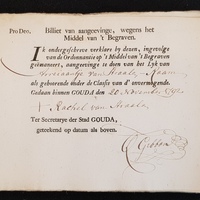 Pro Deo,
Billiet van aangeevinge, wegens het
Middel van 't Begraven.
Ik ondergeschreve verklare by dezen, ingevolge
van de Ordonnantie op 't Middel van 't Begraven
geëmaneert, aangeevinge te doen van het Lyk van
van
als gehoorende onder de Classis van d' onvermogende.
Gedaan binnen GOUDA, den 20 November 1792
Rachel van
Ter Secretarye der Stad GOUDA,
geteekend op datum als boven.